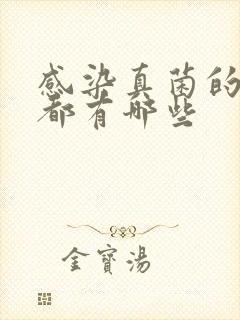 感染真菌的
都有哪些
金寶湯